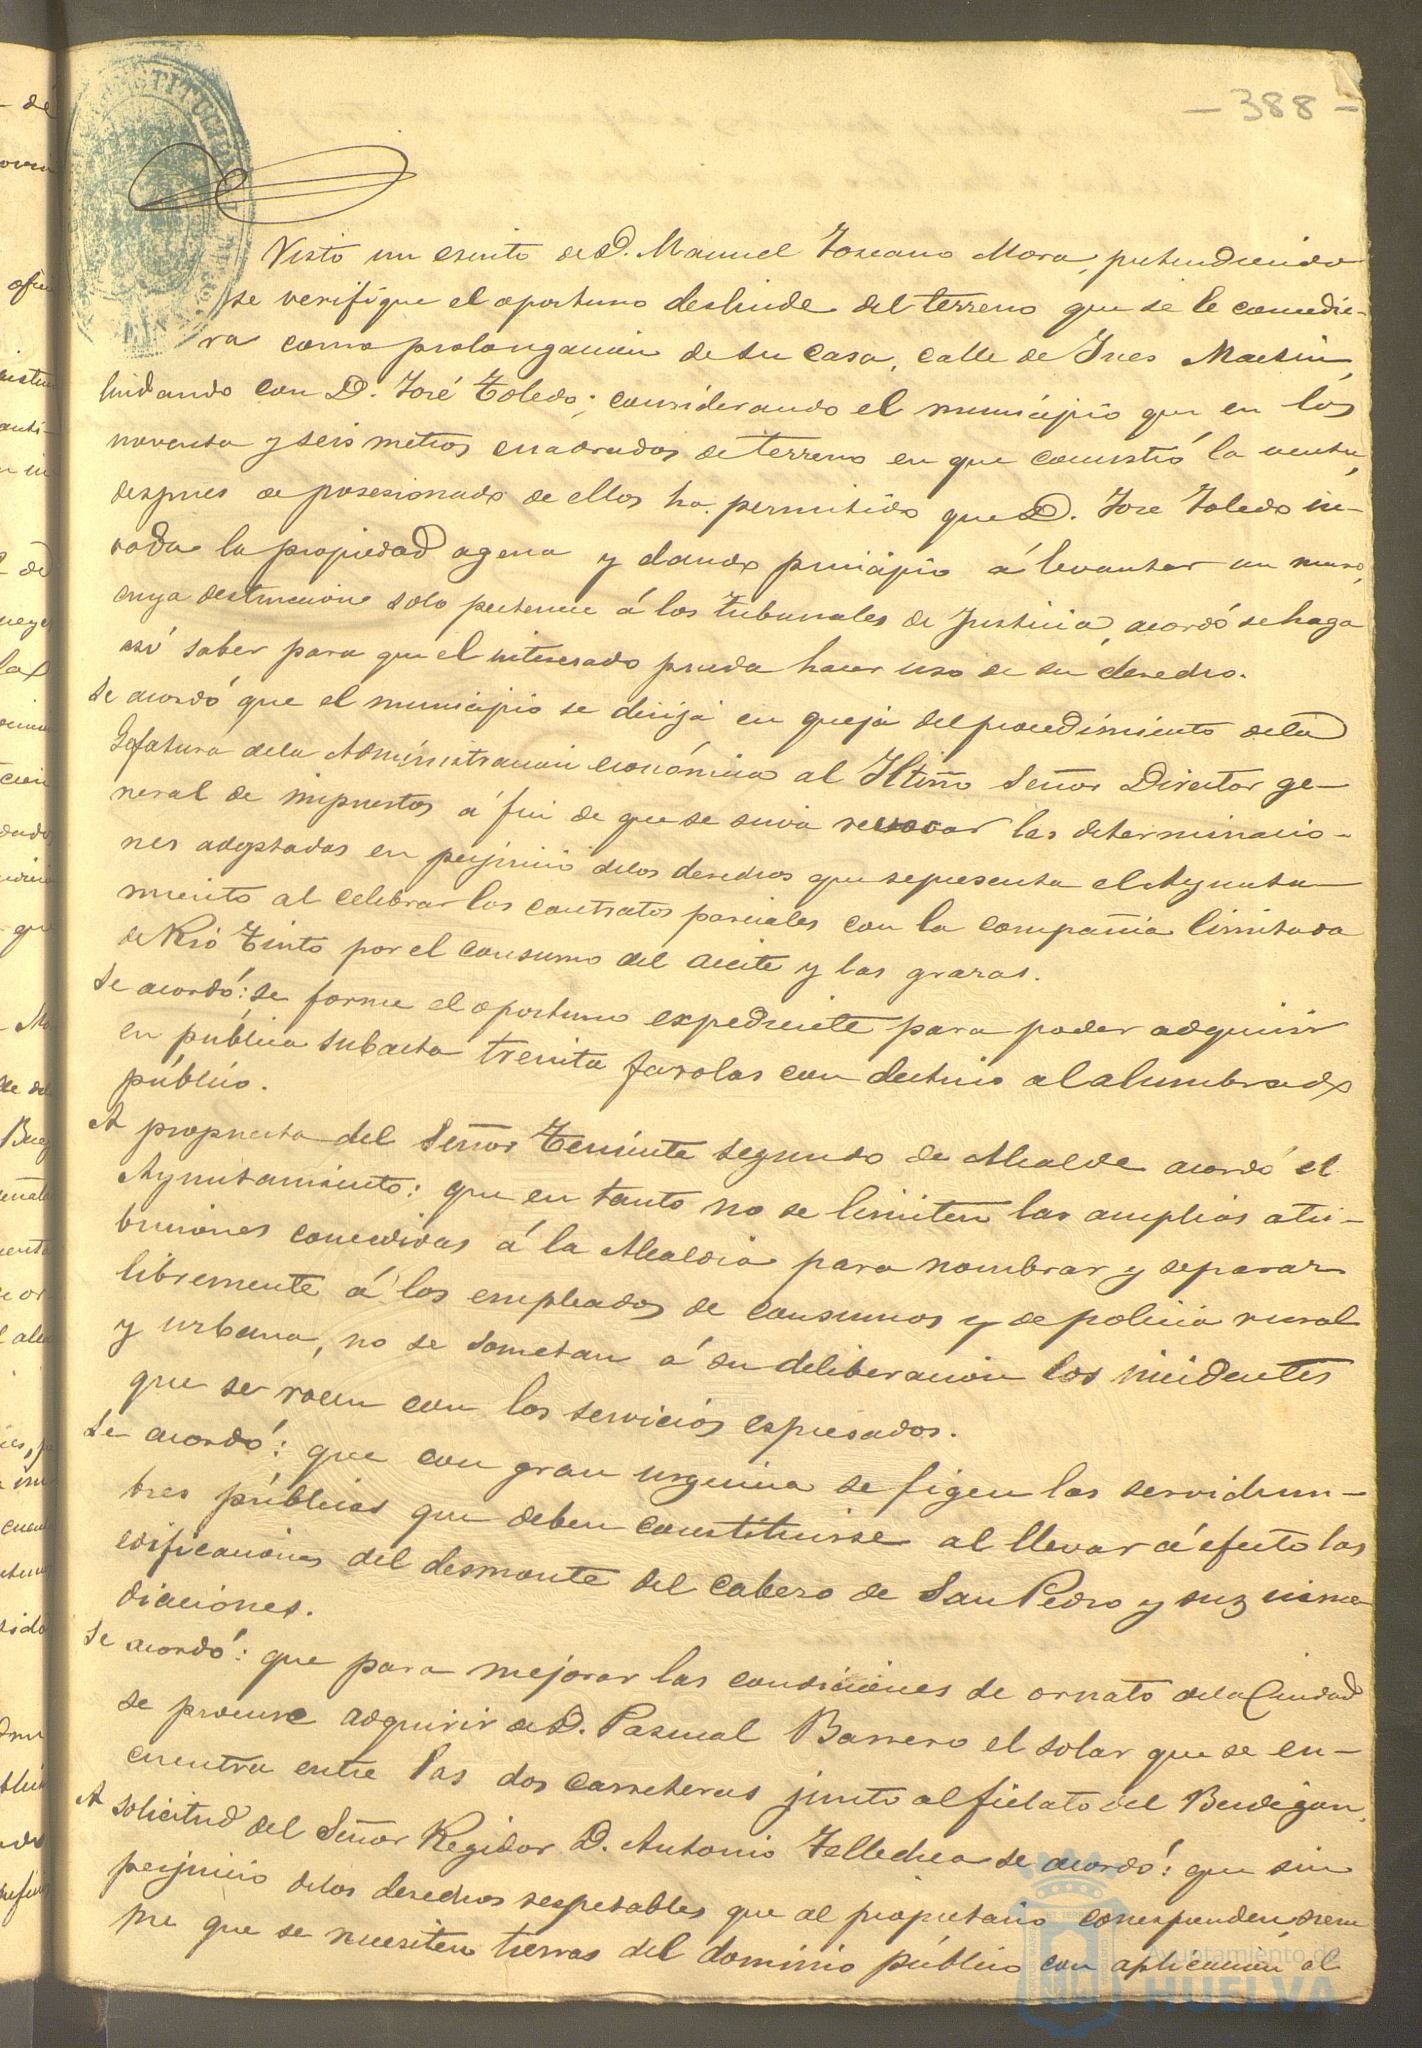 - 388 -
Visto un escrito de D. Manuel Toscano Mora, pretendiendo
se verifique el oportuno deslinde del terreno que se le concedie-
ra como prolongacion de su casa, calle de Ynes Martin,
lindando con D. José Toledo; considerando el municipio que en los
noventa y seis metros cuadrados de terreno en que consistió la venta,
despues de posesionado de ellos ha permitido que D. José Toledo in-
vada la propiedad agena y dando principio á levantar un muro,
cuya destruccion solo pertenece á los tribunales de Justicia, acordó se haga
asi saber para que el interesado pueda hacer uso de su derecho.
Se acordó que el municipio se dirija en queja del procedimiento de la
Gefatura de la Administracion económica al Iltmo Señor Director ge-
neral de impuestos á fin de que se sirva revocar las determinacio-
nes adoptadas en perjuicio de los derechos que representa el Ayunta-
miento al celebrar los contratos parciales con la compañia limitada
de Rio Tinto por el consumo del aceite y las grazas.
Se acordó: se forme el oportuno expediente para poder adquirir
en publica subasta treinta farolas con destino al alumbrado
público.
A propuesta del Señor Teniente segundo de Alcalde acordó el
Ayuntamiento: que en tanto no se limiten las amplias atri-
buciones concedidas á la Alcaldia para nombrar y separar
libremente á los empleados de consumos y de policia rural
y urbana, no se sometan á su deliberacion los incidentes
que se rocen con los servicios espresados.
Se acordó: que con gran urgencia se figen las servidum-
bres públicas que deben constituirse al llevar á efecto las
edificaciones del desmonte del cabezo de San Pedro y sus inme
diaciones.
Se acordó: que para mejorar las condiciones de ornato de la Ciudad
se procure adquirir de D. Pascual Barrero el solar que se en-
cuentra entre las dos carreteras junto al fielato del Berdigon.
A solicitud del Señor Regidor D. Antonio Tellechea se acordó: que sin
perjuicio de los derechos respetables que al propietario corresponden siem
pre que se necesiten tierras del dominio público con aplicacion al
Ayuntamiento de
HUELVA